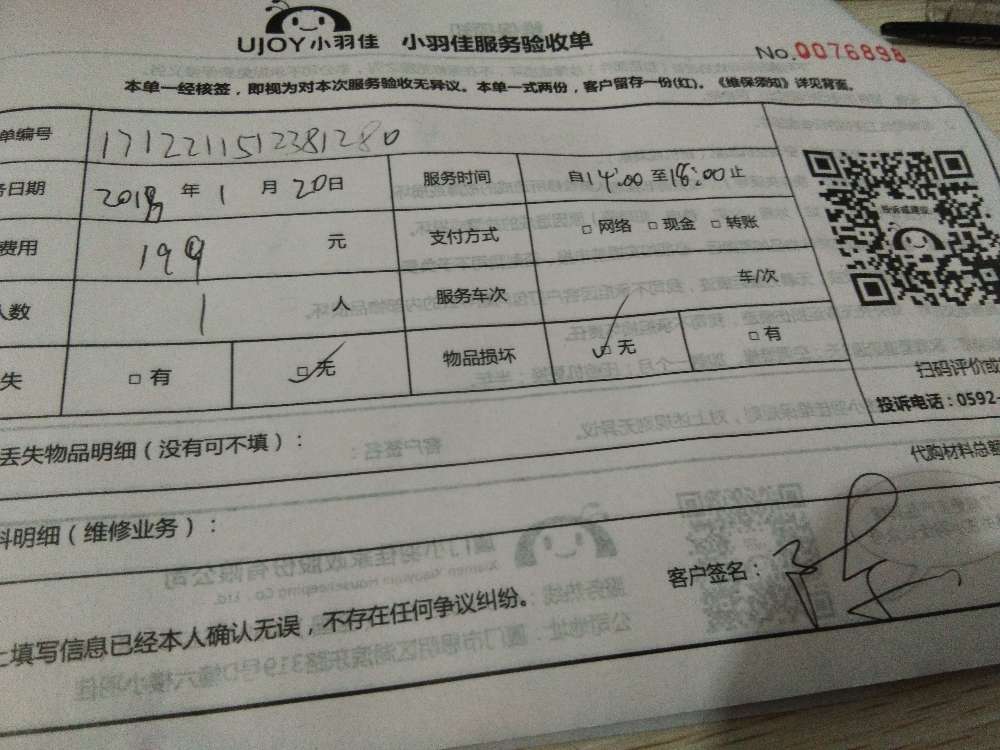 UJOY小羽佳 小羽佳服务验收单
No.0076898
本单一经核签，即视为对本次服务验收无异议。本单一式两份，客户留存一份(红)。《维保须知》详见背面。
单编号 1712211512381280
务日期 2018 年 1 月 20日 服务时间 自14:00 至18:00 止
费用 199 元 支付方式 □ 网络 □ 现金 □ 转账
人数 1 人 服务车次 车/次
失 □ 有 □ 无 物品损坏 □ 无 □ 有
投诉或建议
扫码评价或
投诉电话：0592-
丢失物品明细（没有可不填）：
代购材料总额
料明细（维修业务）：
客户签名：
上填写信息已经本人确认无误，不存在任何争议纠纷。